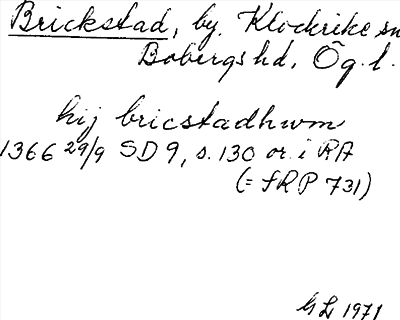 Brickstad, by. Klockrike sn
Bobergs hd, Ög. l.
hij bricstadhwm
1366 29/9 SD 9, s. 130 or. i RA
(= SRP 731)
GL 1971